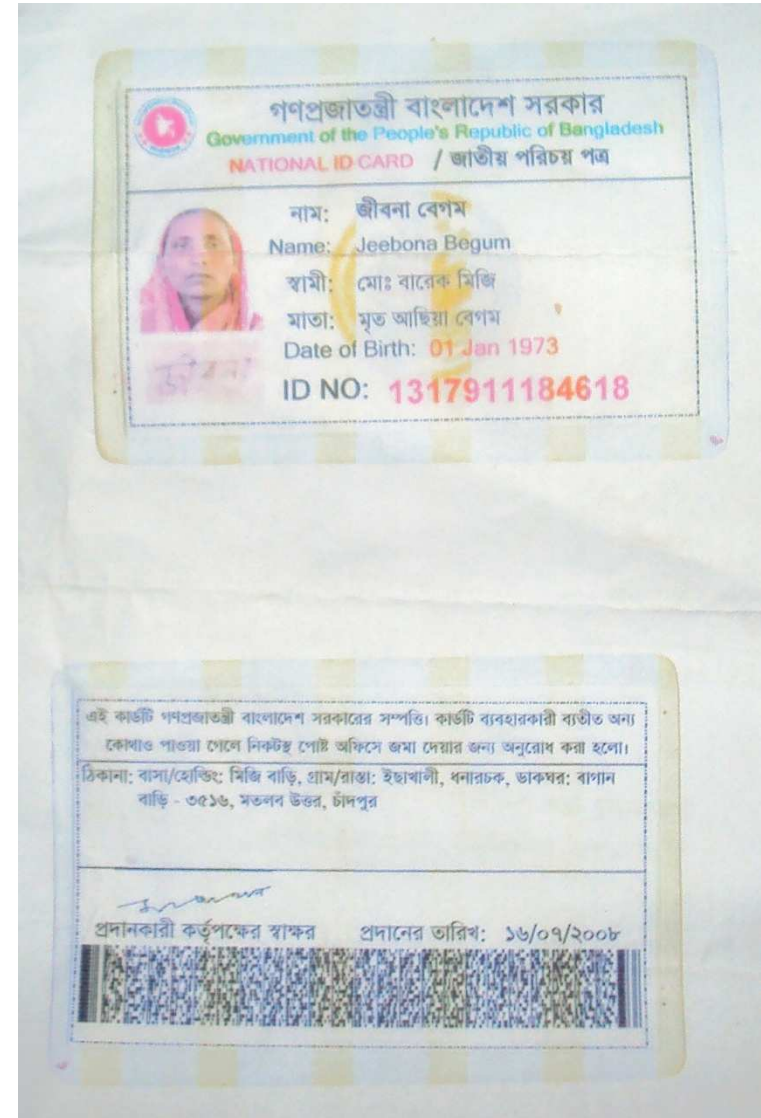 গণপ্রজাতন্ত্রী বাংলাদেশ সরকার
Government of the People's Republic of Bangladesh
NATIONAL ID CARD / জাতীয় পরিচয় পত্র
নাম: জীবনা বেগম
Name: Jeebona Begum
স্বামী: মোঃ বারেক মিজি
মাতা: মৃত আছিয়া বেগম
Date of Birth: 01 Jan 1973
জীবনা
ID NO: 1317911184618
এই কার্ডটি গণপ্রজাতন্ত্রী বাংলাদেশ সরকারের সম্পত্তি। কার্ডটি ব্যবহারকারী ব্যতীত অন্য
কোথাও পাওয়া গেলে নিকটস্থ পোষ্ট অফিসে জমা দেয়ার জন্য অনুরোধ করা হলো।
ঠিকানা: বাসা/হোল্ডিং: মিজি বাড়ি, গ্রাম/রাস্তা: ইছাখালী, ধনারচক, ডাকঘর: বাগান
বাড়ি - ৩৫১৬, মতলব উত্তর, চাঁদপুর
প্রদানকারী কর্তৃপক্ষের স্বাক্ষর প্রদানের তারিখ: ১৬/০৭/২০০৮